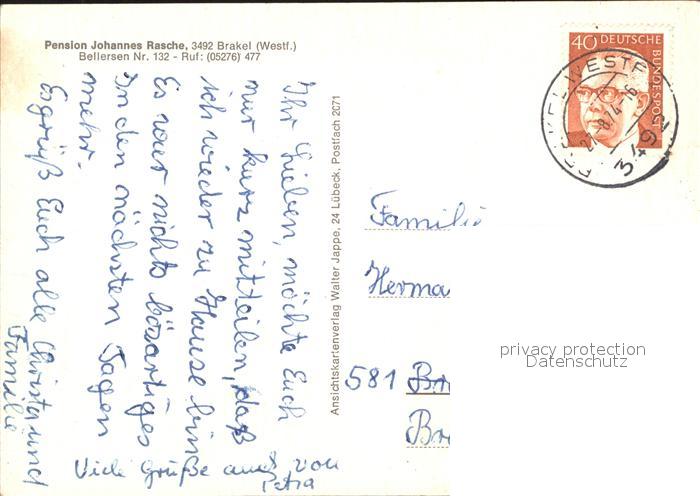 Pension Johannes Rasche, 3492 Brakel (Westf.)
Bellersen Nr. 132 - Ruf: (05276) 477
Ihr Lieben, möchte Euch
nur kurz mitteilen, daß
ich wieder zu Hause bin
Es war nichts bösartiges
In den nächsten Tagen
mehr.
Es grüßt Euch alle Christa und
Familie
Viele Grüße auch von
Petra
Ansichtskartenverlag Walter Jappe, 24 Lübeck, Postfach 2071
40 DEUTSCHE
BUNDESPOST
BRAKEL, WESTF
3492
Familie
Herma
581
privacy protection
Datenschutz